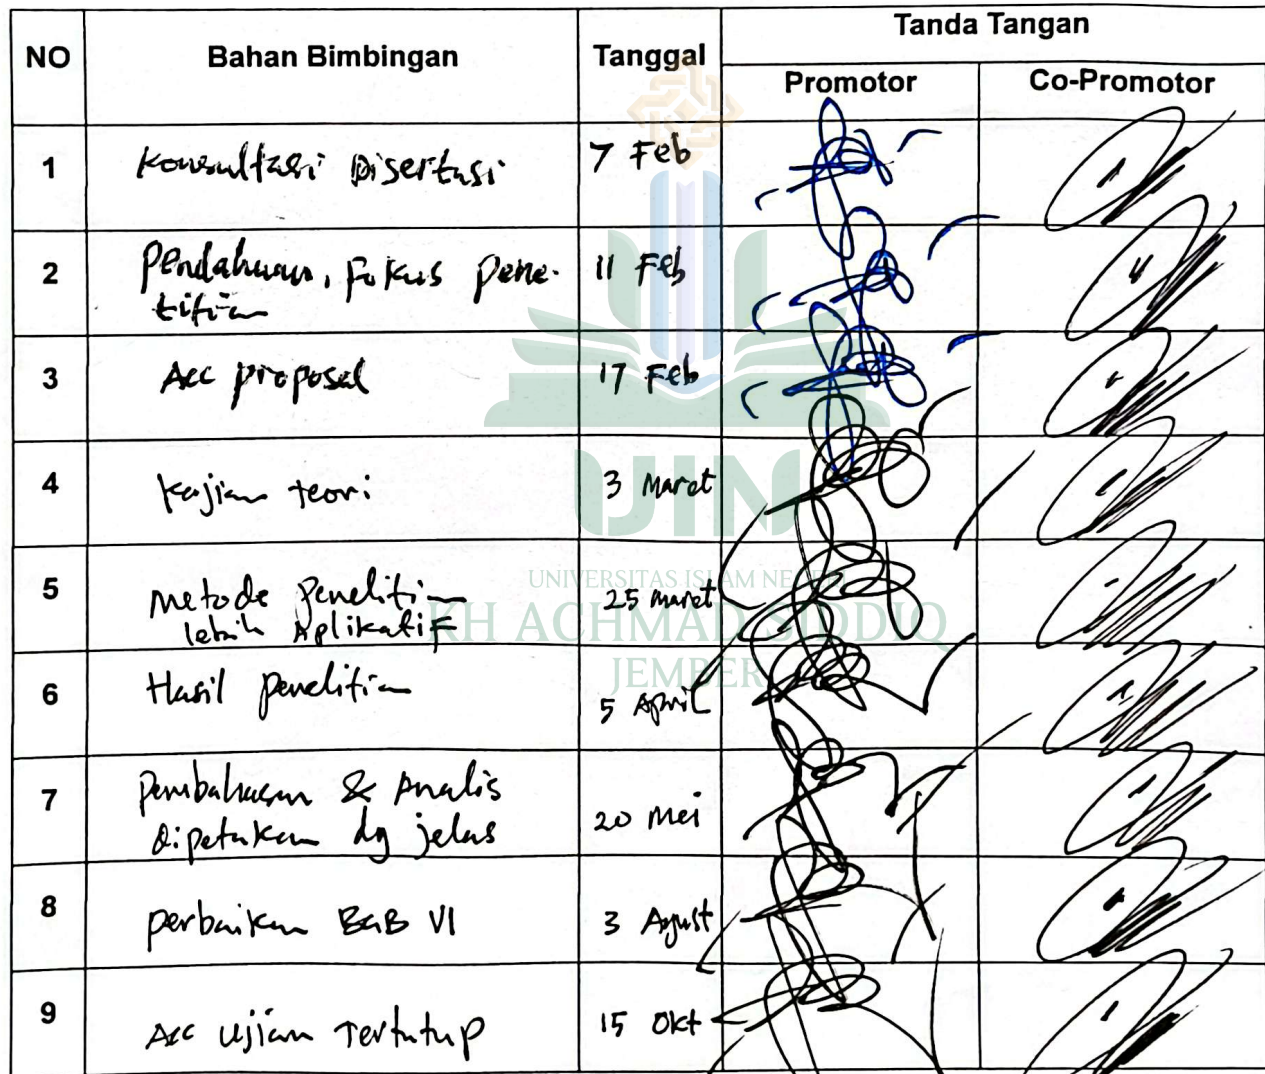 NO Bahan Bimbingan Tanggal Tanda Tangan
Promotor Co-Promotor
1 Konsultasi Disertasi 7 Feb
2 Pendahuluan, Fokus pene- 11 Feb
litian
3 Acc proposal 17 Feb
4 Kajian teori 3 Maret
5 Metode Penelitian 25 Maret
lebih Aplikatif
6 Hasil penelitian 5 April
7 Pembahasan & Analis 20 Mei
dipetakan dg jelas
8 perbaikan BAB VI 3 Agust
9 Acc Ujian Tertutup 15 Okt
UIN
UNIVERSITAS ISLAM NEGERI
KH ACHMAD SIDDIQ
JEMBER